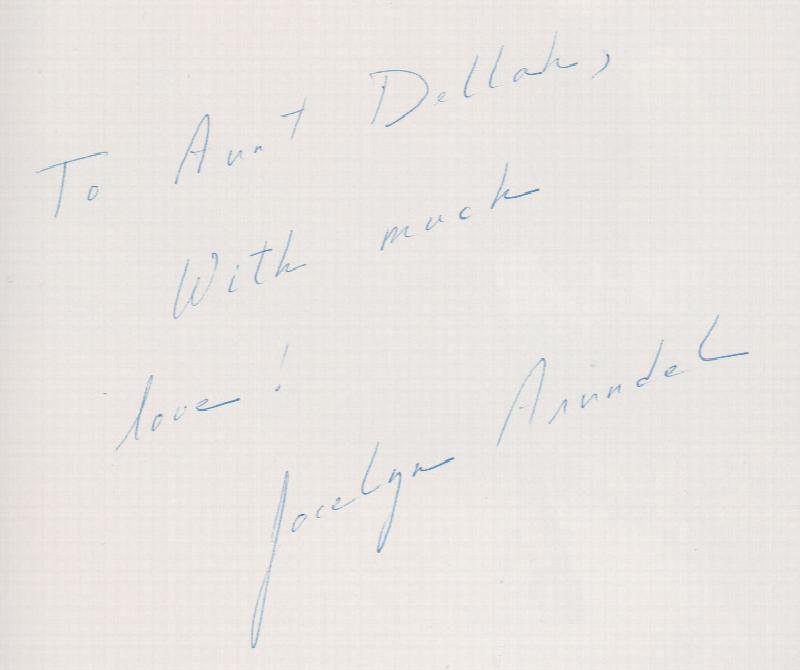 To Aunt Dellah,
With much
love!
Jocelyn Arundel